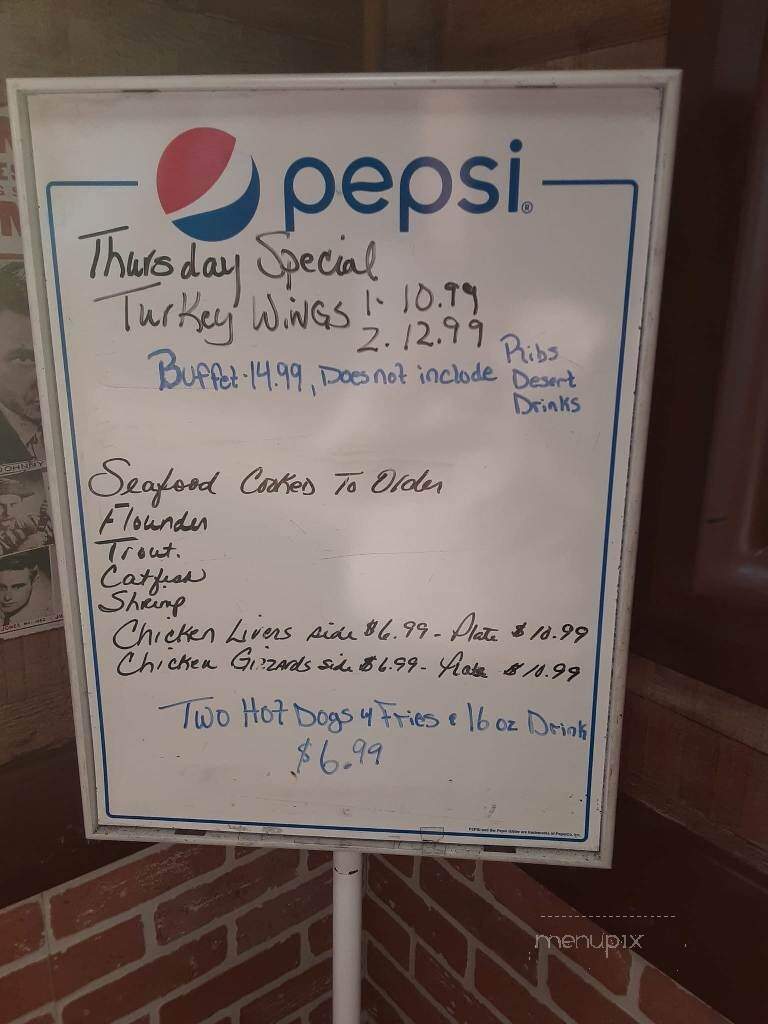 pepsi®
Thursday Special
Turkey Wings 1. 10.99
2. 12.99
Buffet-14.99, Does not include Ribs
Desert
Drinks
Seafood Cooked To Order
Flounder
Trout.
Catfish
Shrimp
Chicken Livers side $6.99 - Plate $10.99
Chicken Gizzards side $6.99 - Plate $10.99
Two Hot Dogs & Fries & 16 oz Drink
$6.99
menupix
JOHNNY